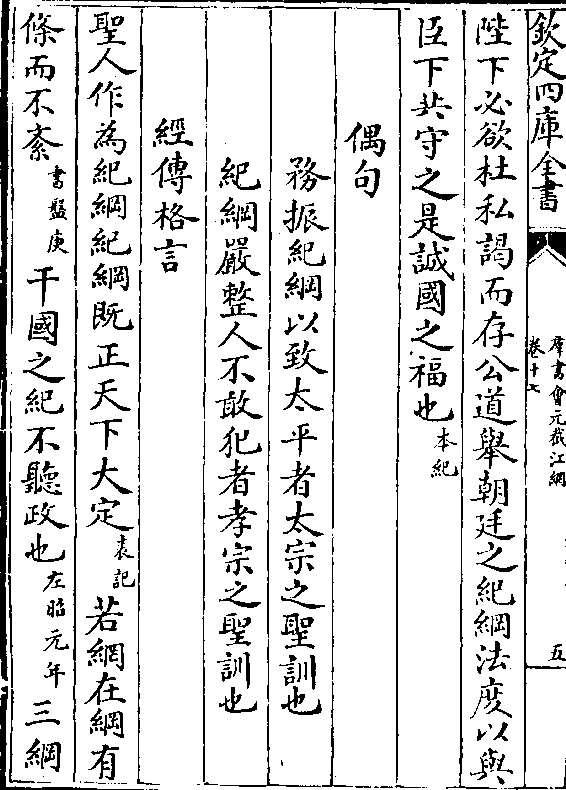 欽定四庫全書
羣書會元截江網
卷十七
五
陛下必欲杜私謁而存公道舉朝廷之紀綱法度以與
臣下共守之是誠國之福也本紀
偶句
務振紀綱以致太平者太宗之聖訓也
紀綱嚴整人不敢犯者孝宗之聖訓也
經傳格言
聖人作為紀綱紀綱既正天下大定表記若網在綱有
條而不紊書盤庚干國之紀不聽政也左昭元年三綱